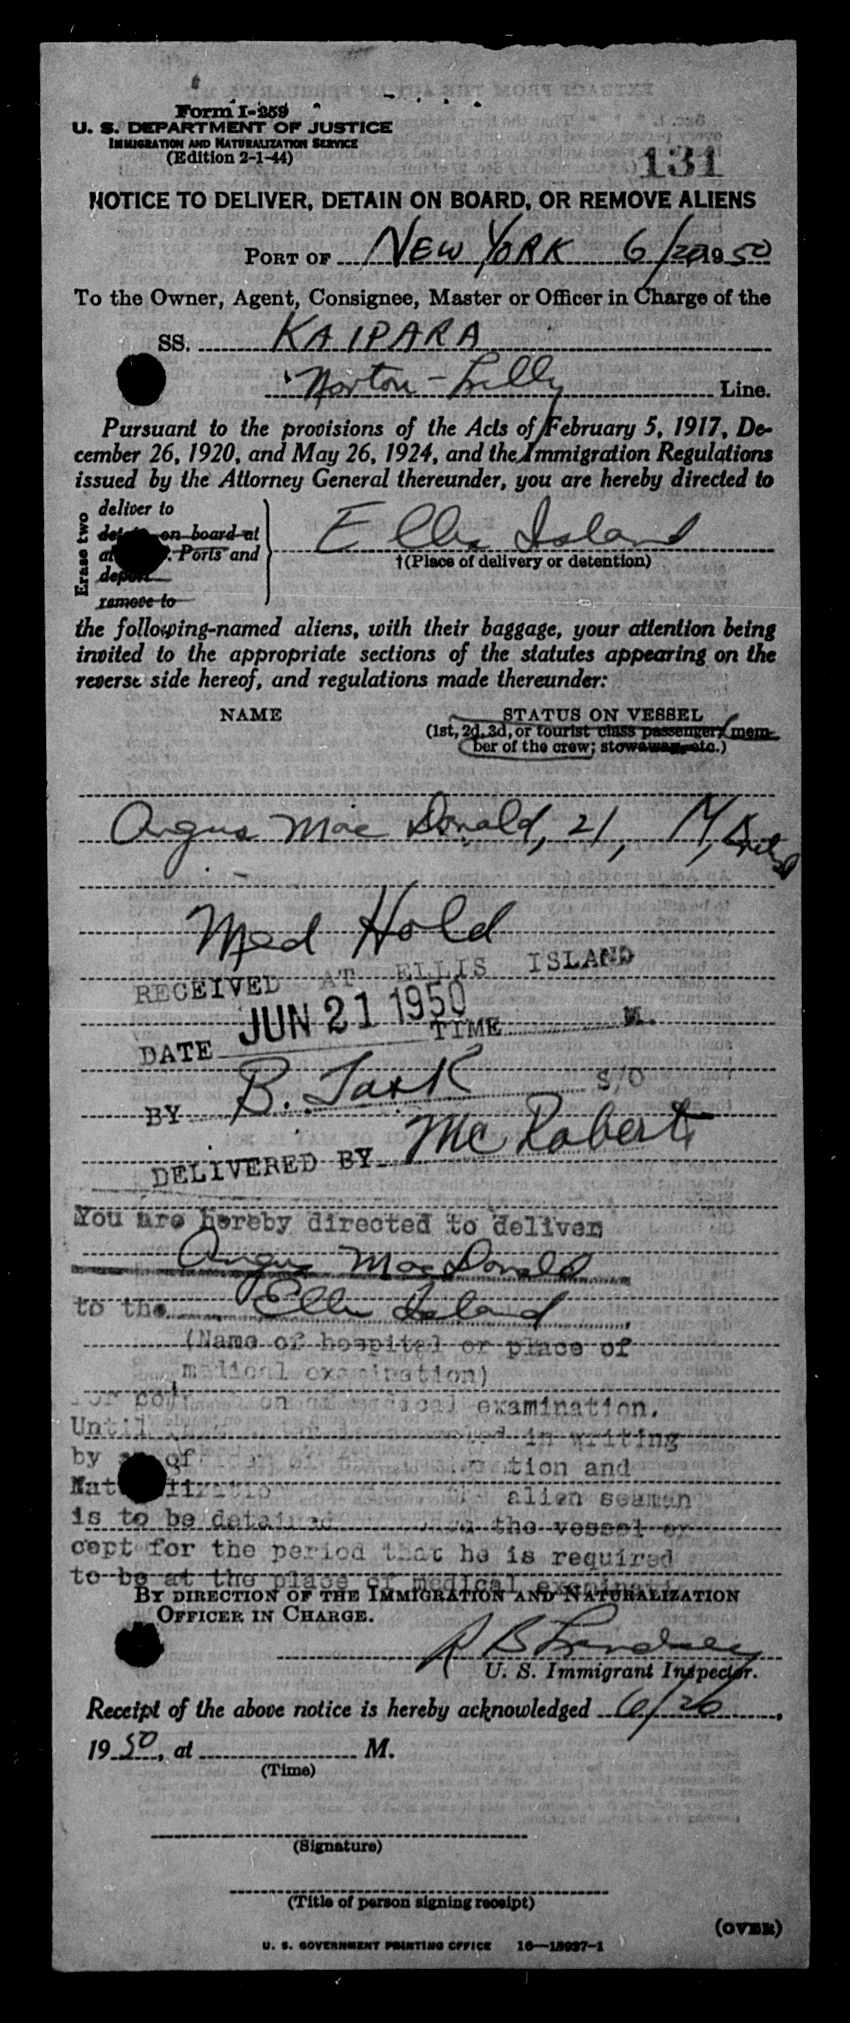 Form I-259
U. S. DEPARTMENT OF JUSTICE
IMMIGRATION AND NATURALIZATION SERVICE
(Edition 2-1-44)
131
NOTICE TO DELIVER, DETAIN ON BOARD, OR REMOVE ALIENS
PORT OF NEW YORK 6/20, 1950
To the Owner, Agent, Consignee, Master or Officer in Charge of the
SS. KAIPARA
Norton-Lilly Line.
Pursuant to the provisions of the Acts of February 5, 1917, De-
cember 26, 1920, and May 26, 1924, and the Immigration Regulations
issued by the Attorney General thereunder, you are hereby directed to
Erase two
deliver to
on board at
Ports and
remove to
Ellis Island
†(Place of delivery or detention)
the following-named aliens, with their baggage, your attention being
invited to the appropriate sections of the statutes appearing on the
reverse side hereof, and regulations made thereunder:
NAME STATUS ON VESSEL
(1st, 2d, 3d, or tourist class passenger; mem-
ber of the crew; stowaway, etc.)
Angus MacDonald, 21, M,
Med Hold
RECEIVED AT ELLIS ISLAND
DATE JUN 21 1950 TIME M.
BY B. Task S/O
DELIVERED BY McRoberts
You are hereby directed to deliver
Angus MacDonald
to the Ellis Island
(Name of hospital or place of
medical examination)
examination.
Until in writing
by and
alien seaman
is to be detained the vessel
cept for the period that he is required
to be at the place of medical
BY DIRECTION OF THE IMMIGRATION AND NATURALIZATION
OFFICER IN CHARGE.
R B Lindsey
U. S. Immigrant Inspector.
Receipt of the above notice is hereby acknowledged 6/20,
1950, at M.
(Time)
(Signature)
(Title of person signing receipt)
(OVER)
U. S. GOVERNMENT PRINTING OFFICE 16—13937-1